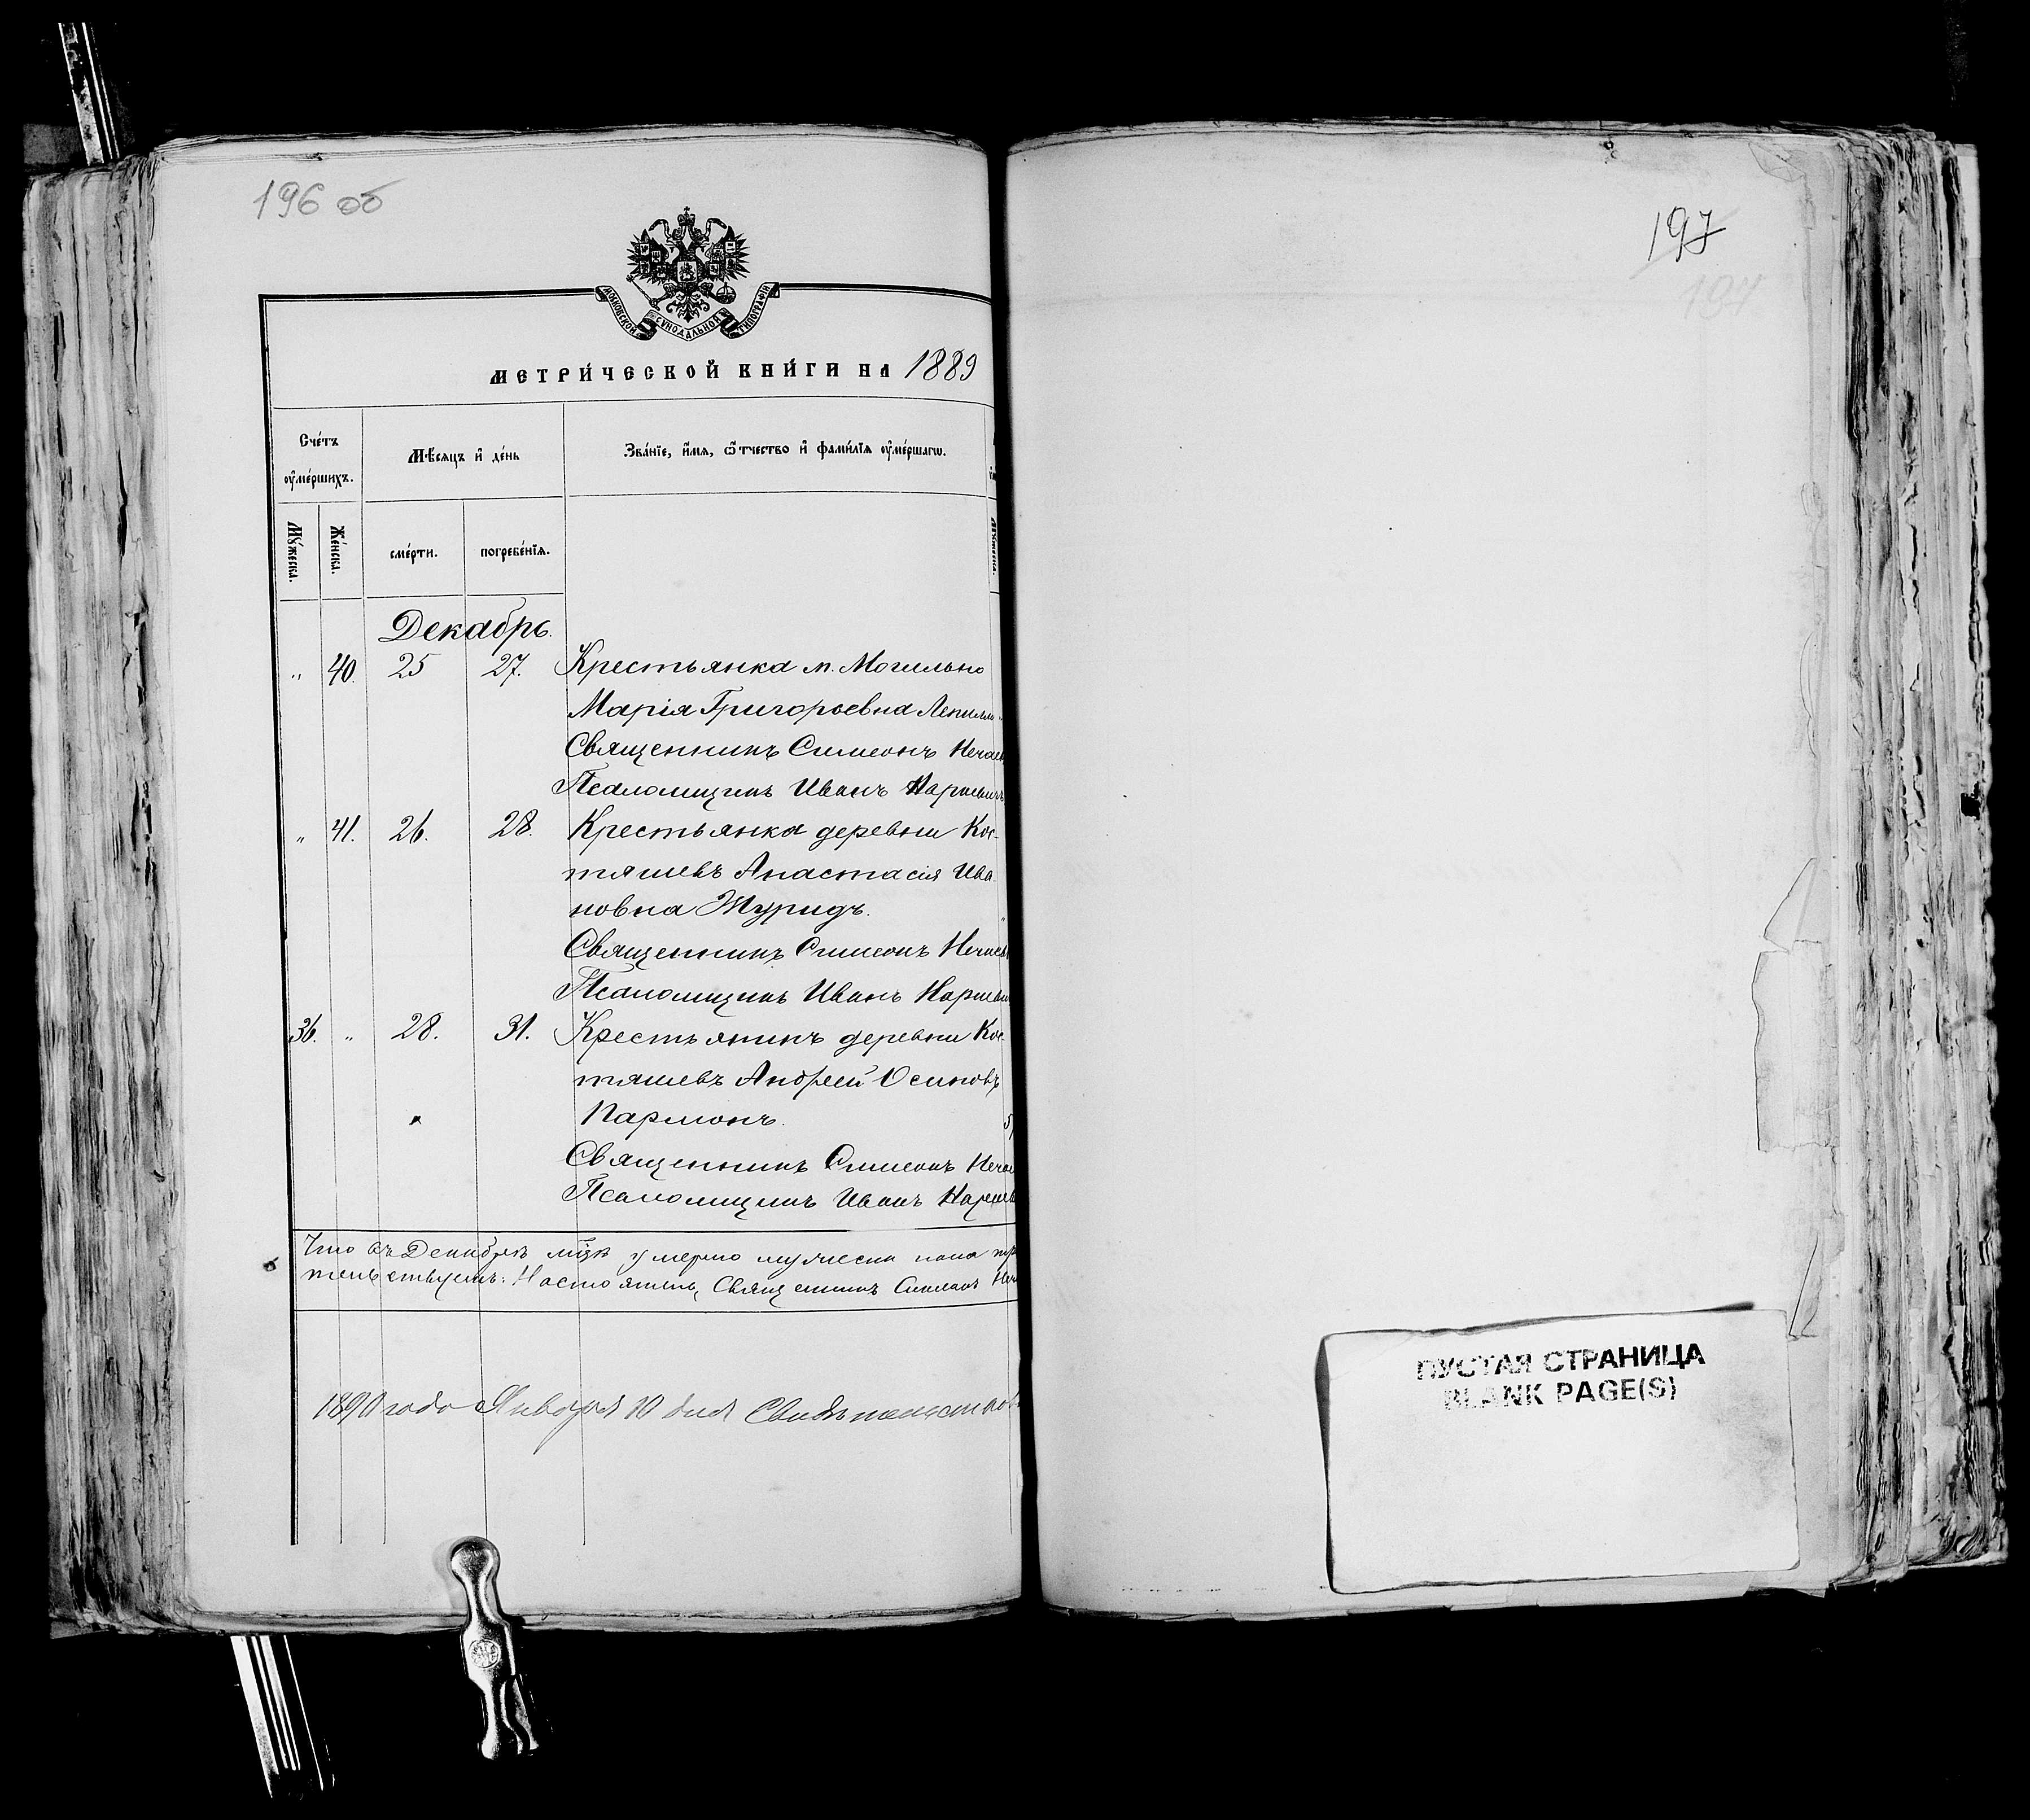 196 об
МОСКОВСКОЙ СѴНОДАЛЬНОЙ ТИПОГРАФІИ
МЕТРИ́ЧЕСКОЙ КНИ́ГИ НА 1889
Сче́тъ ᲂу҆ме́ршихъ.
Мѣ́сяцъ и҆ де́нь
Зва́нїе, и҆́мѧ, ѻ҆́тчество и҆ фами́лїѧ ᲂу҆ме́ршагѡ.
Мꙋ́жеска.
Же́нска.
сме́рти.
погребе́нїѧ.
Декабрь.
„ 40. 25 27. Крестьянка м. Могильно
Марія Григорьевна
Священникъ Симеонъ Нечаев
Псаломщикъ Иванъ Наркевичъ
„ 41. 26. 28. Крестьянка деревни Кос-
тяшевъ Анастасія Ива-
новна Журидъ.
Священникъ Симеонъ Нечаев
Псаломщикъ Иванъ Наркеви
36. „ 28. 31. Крестьянинъ деревни Кос-
тяшевъ Андрей Осиповъ
Пармонъ.
Священникъ Симеонъ Нечае
Псаломщикъ Иванъ Наркев
Что въ Декабрѣ мцѣ умерло мужеска пола
тельствуемъ: Настоятель, Священникъ Симеонъ Неч
1890 года Января 10 дня Свидѣтельствов
197
197
ПУСТАЯ СТРАНИЦА
BLANK PAGE(S)